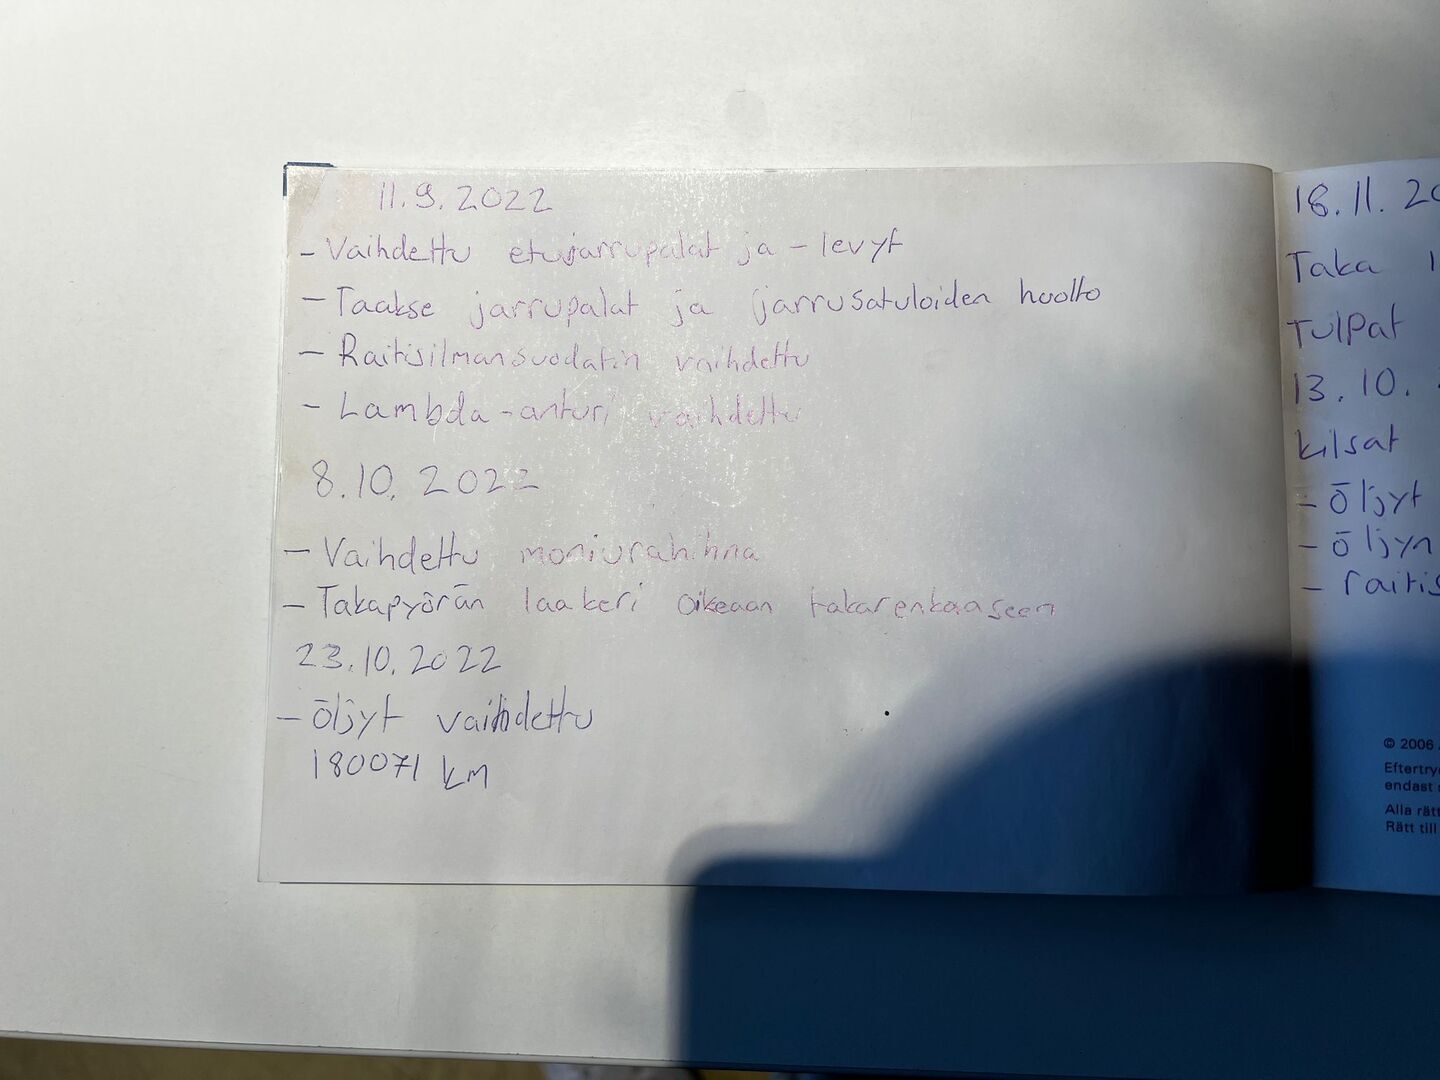 11.9.2022
- Vaihdettu etujarrupalat ja -levyt
- Taakse jarrupalat ja jarrusatuloiden huolto
- Raitisilmansuodatin vaihdettu
- Lambda-anturi vaihdettu
8.10.2022
- Vaihdettu moniurahihna
- Takapyörän laakeri oikeaan takarenkaaseen
23.10.2022
- öljyt vaihdettu
180071 km
18.11.20
Taka
Tulpat
13.10.
kilsat
- öljyt
- öljyn
- raitis
© 2006
Eftertry
endast
Alla rätt
Rätt till